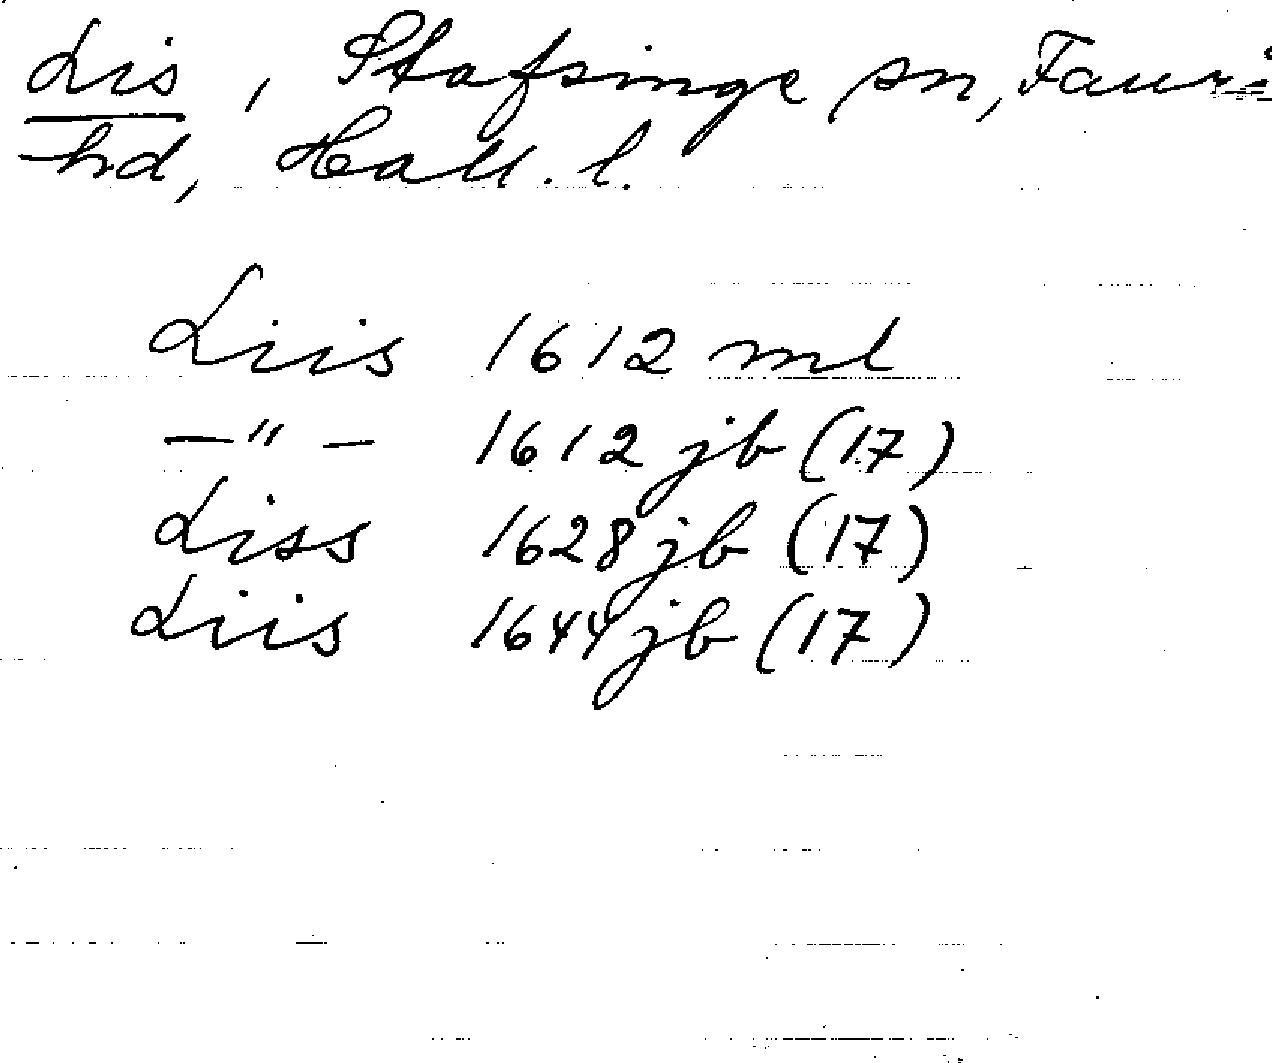 Lis, Stafsinge sn, Faur
hd, Hall. l.
Liis 1612 ml
—"— 1612 jb (17)
Liss 1628 jb (17)
Liis 1644 jb (17)